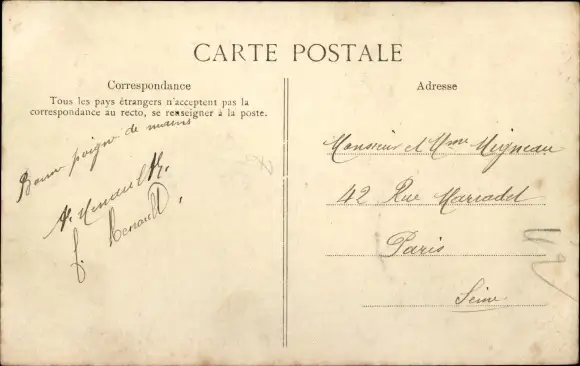 CARTE POSTALE
Correspondance
Tous les pays étrangers n'acceptent pas la
correspondance au recto, se renseigner à la poste.
Adresse
Bonne poigne de mains
f. Renault
Monsieur et Mme Migneau
42 Rue Marcadet
Paris
Seine
42